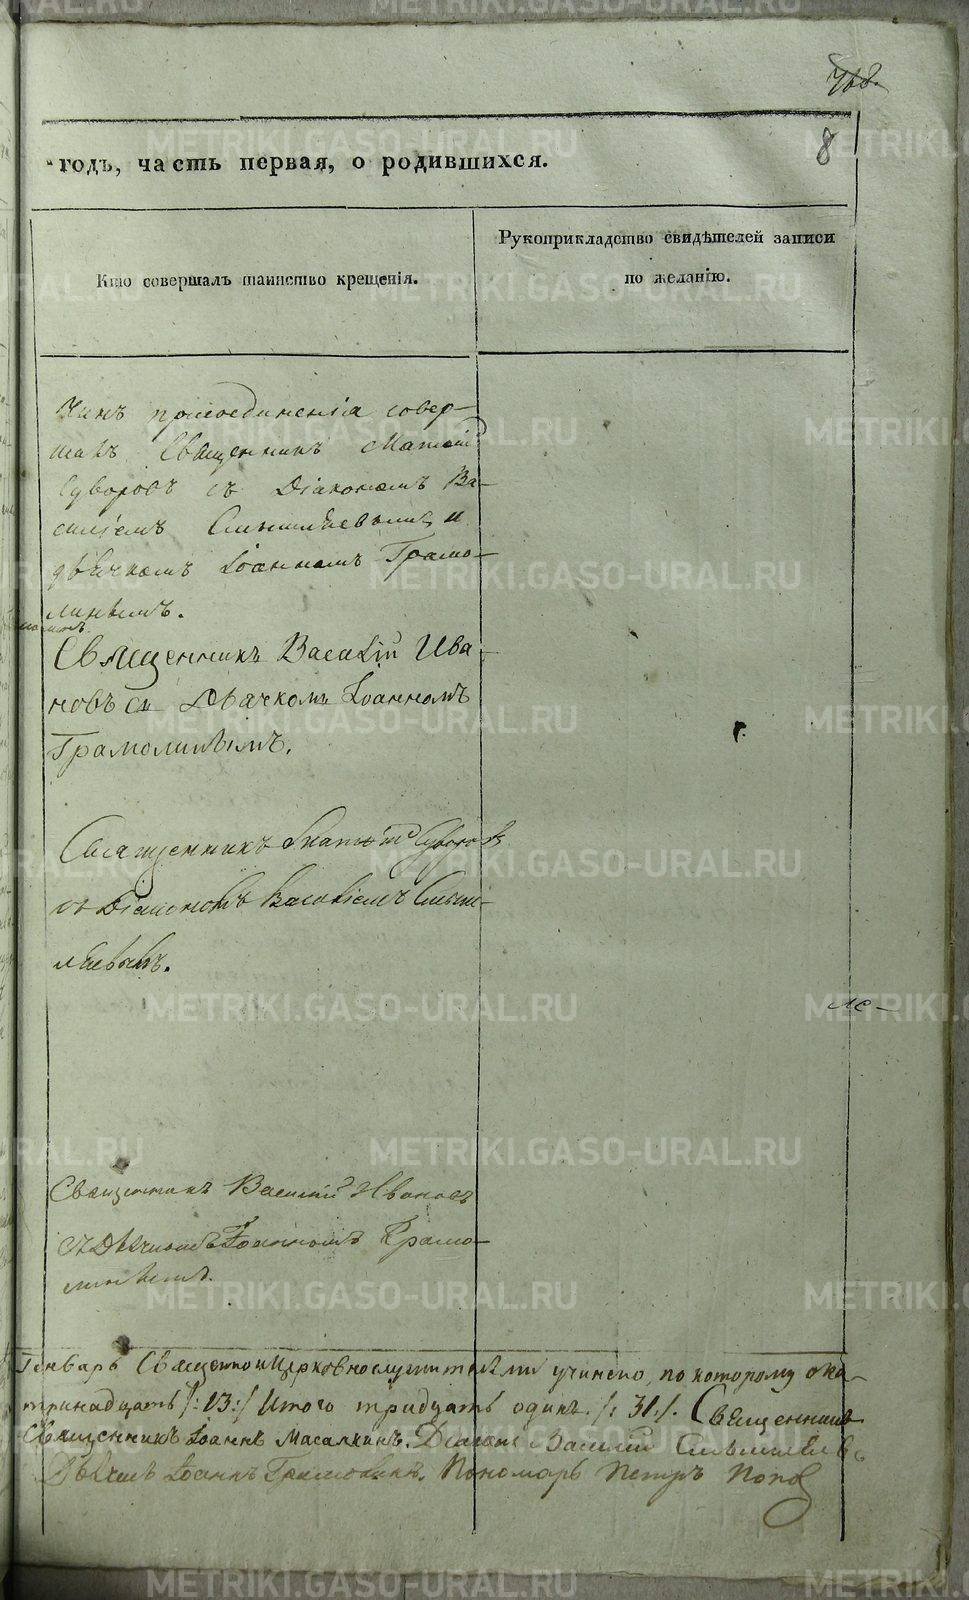 768.
8
годъ, часть первая, о родившихся.
Кто совершалъ таинство крещенія.
Рукоприкладство свидѣтелей записи
по желанію.
Чинъ присоединенія совер-
шалъ Священникъ Матѳій
Суворовъ съ Діакономъ Ва-
силіемъ и
дьячкомъ Іоанномъ Грамо-
линымъ.
Священникъ Василій Ива-
новъ съ Дьячкомъ Іоанномъ
Грамолинымъ.
Священникъ Матѳій Суворовъ
съ Діакономъ Василіемъ
Священникъ Василій Ивановъ
съ Дьячкомъ Іоанномъ Грамо-
линымъ.
Генварь Священно и Церковнослужителями учинено, по которому ока-
тринадцать /:13:/ Итого тридцать одинъ /:31:/. Священникъ
Священникъ Іоаннъ Масалкинъ. Діаконъ Василій
Дьячекъ Іоаннъ Грамолинъ. Пономарь Петръ Поповъ
METRIKI.GASO-URAL.RU